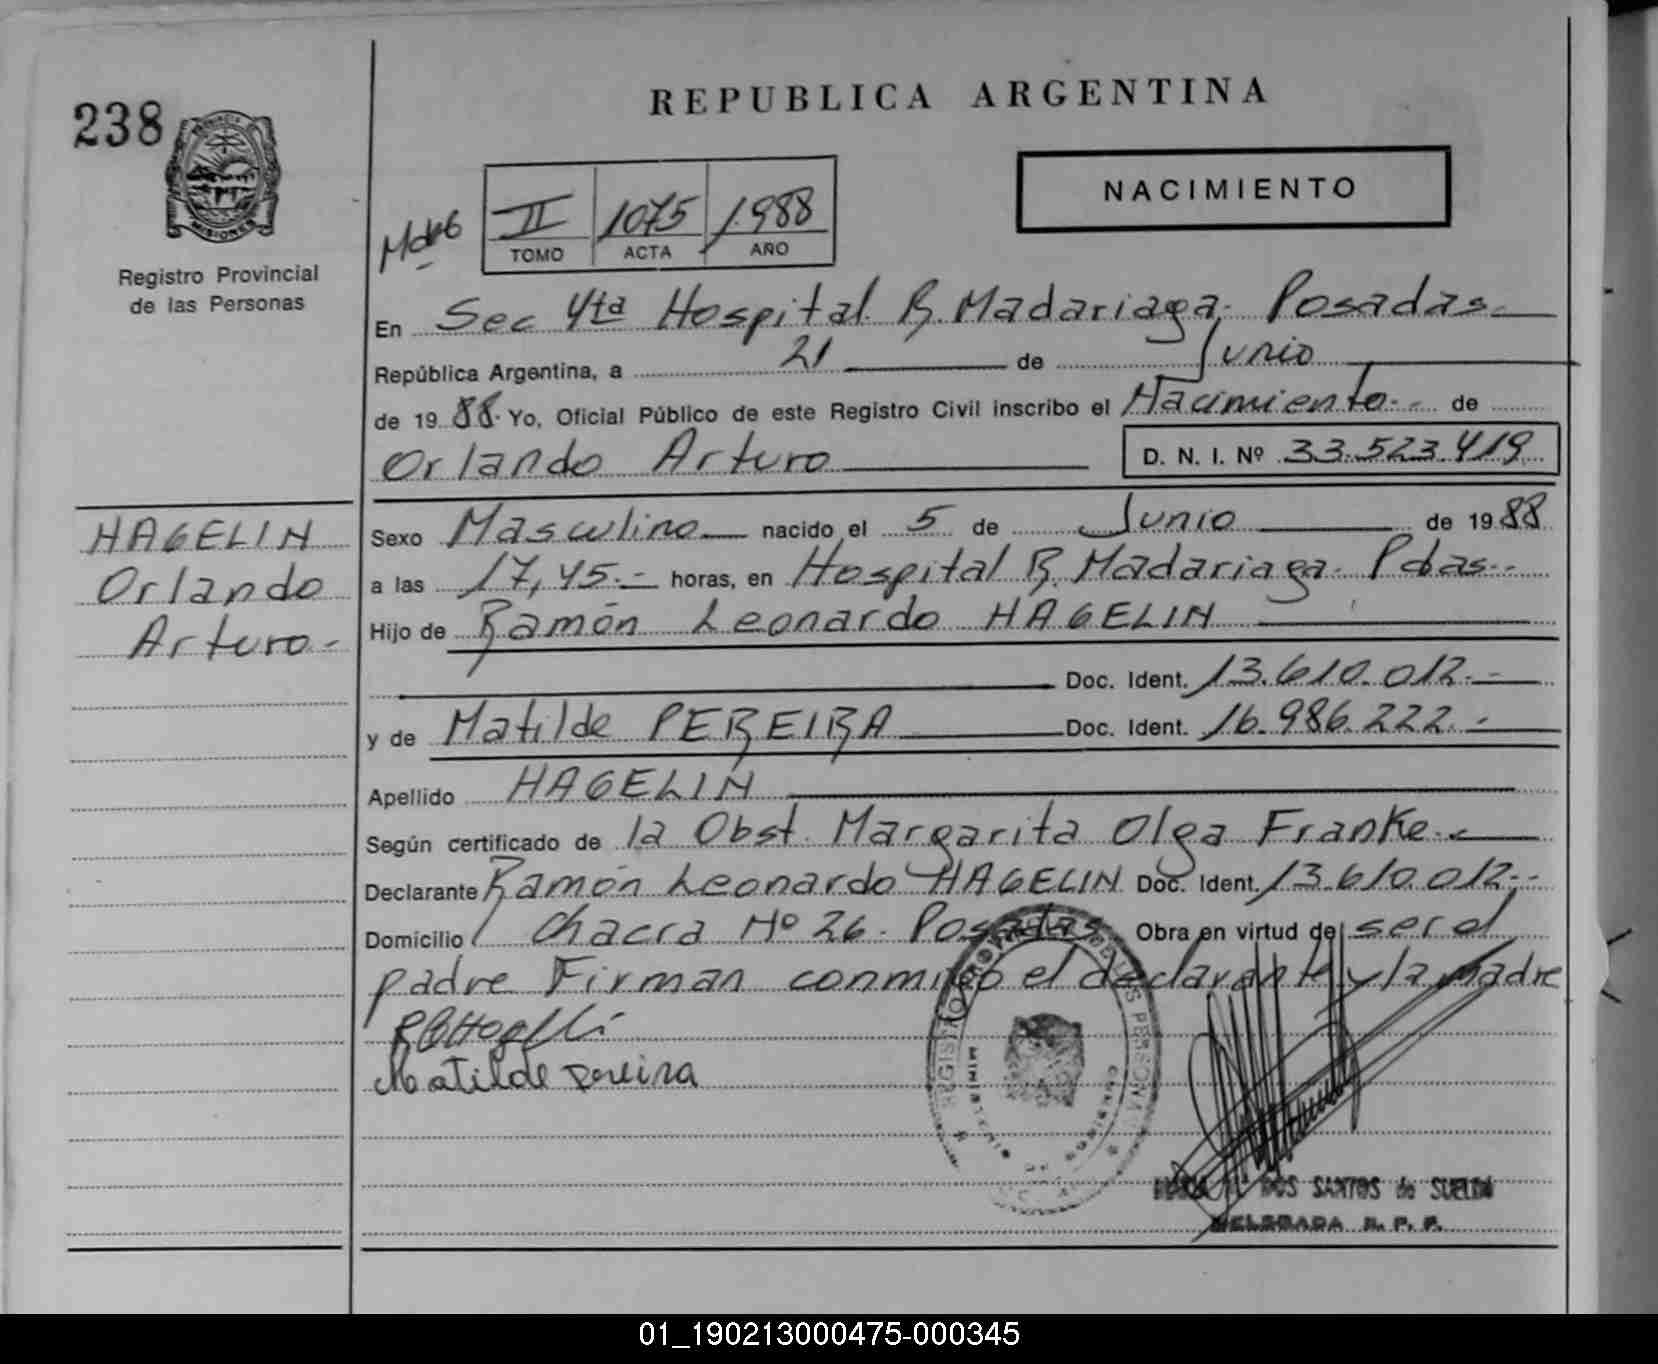 238
REPUBLICA ARGENTINA
MISIONES
Registro Provincial
de las Personas
NACIMIENTO
II 1075 1.988
TOMO ACTA AÑO
En Sec 4ta Hospital R. Madariaga. Posadas.
República Argentina, a 21 de Junio
de 19 88. Yo, Oficial Público de este Registro Civil inscribo el Nacimiento.- de
Orlando Arturo D. N. I. Nº 33.523.419
HAGELIN
Orlando
Arturo.-
Sexo Masculino nacido el 5 de Junio de 19 88
a las 17,45.- horas, en Hospital R. Madariaga. Pdas.-
Hijo de Ramón Leonardo HAGELIN
Doc. Ident. 13.610.012.-
y de Matilde PEREIRA Doc. Ident. 16.986.222.-
Apellido HAGELIN
Según certificado de la Obst. Margarita Olga Franke.-
Declarante Ramón Leonardo HAGELIN Doc. Ident. 13.610.012.-
Domicilio Chacra Nº 26. Posadas Obra en virtud de ser el
padre Firman conmigo el declarante y la madre
Matilde Pereira
DOS SANTOS de SUELDO
DELEGADA R. P. P.
01_190213000475-000345